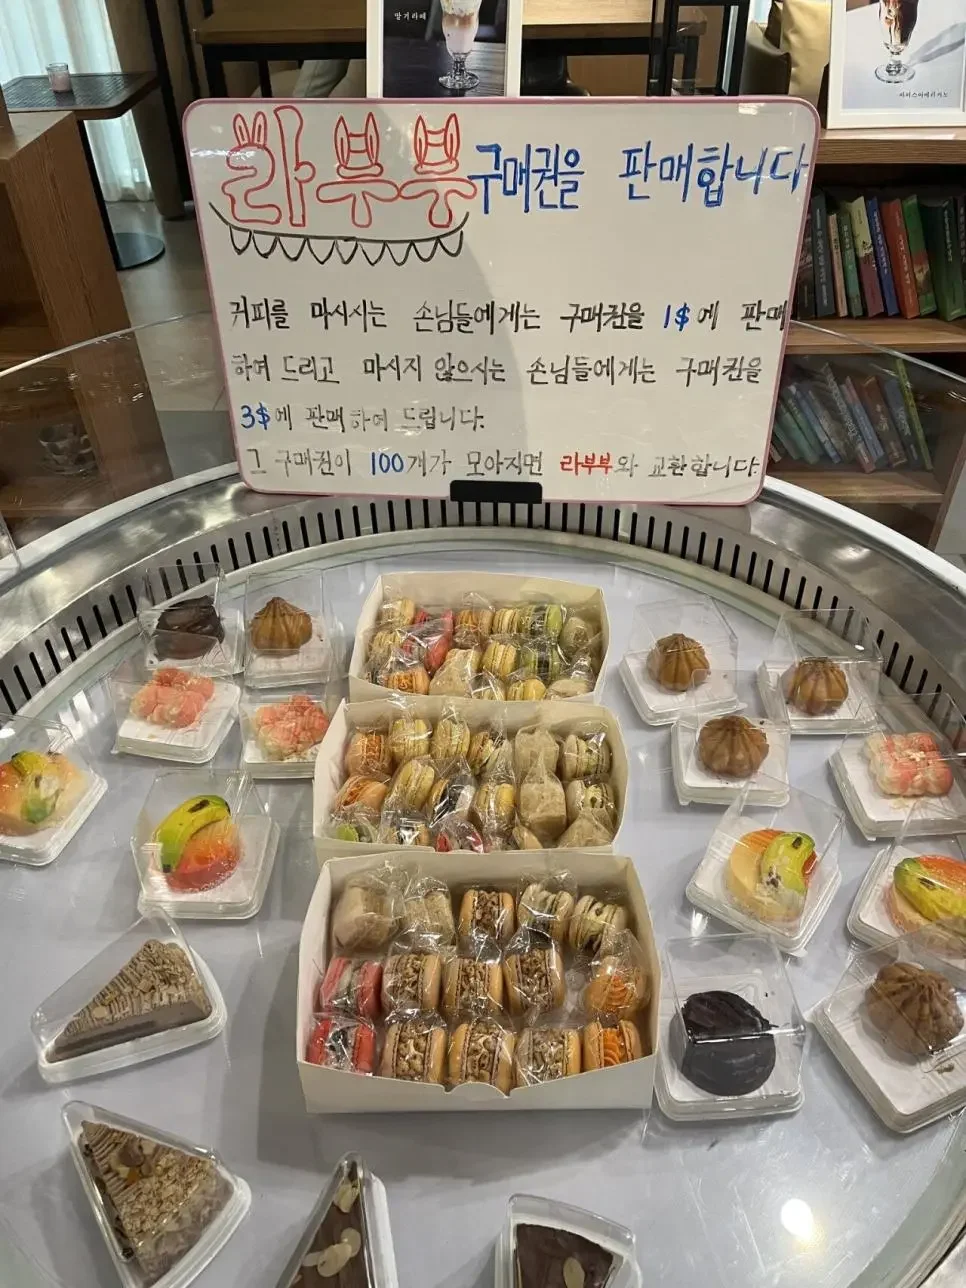 망거라떼
아이스아메리카노
라부부구매권을 판매합니다
커피를 마시시는 손님들에게는 구매권을 1$에 판매
하여 드리고 마시지 않으시는 손님들에게는 구매권을
3$에 판매하여 드립니다.
그 구매권이 100개가 모아지면 라부부와 교환합니다